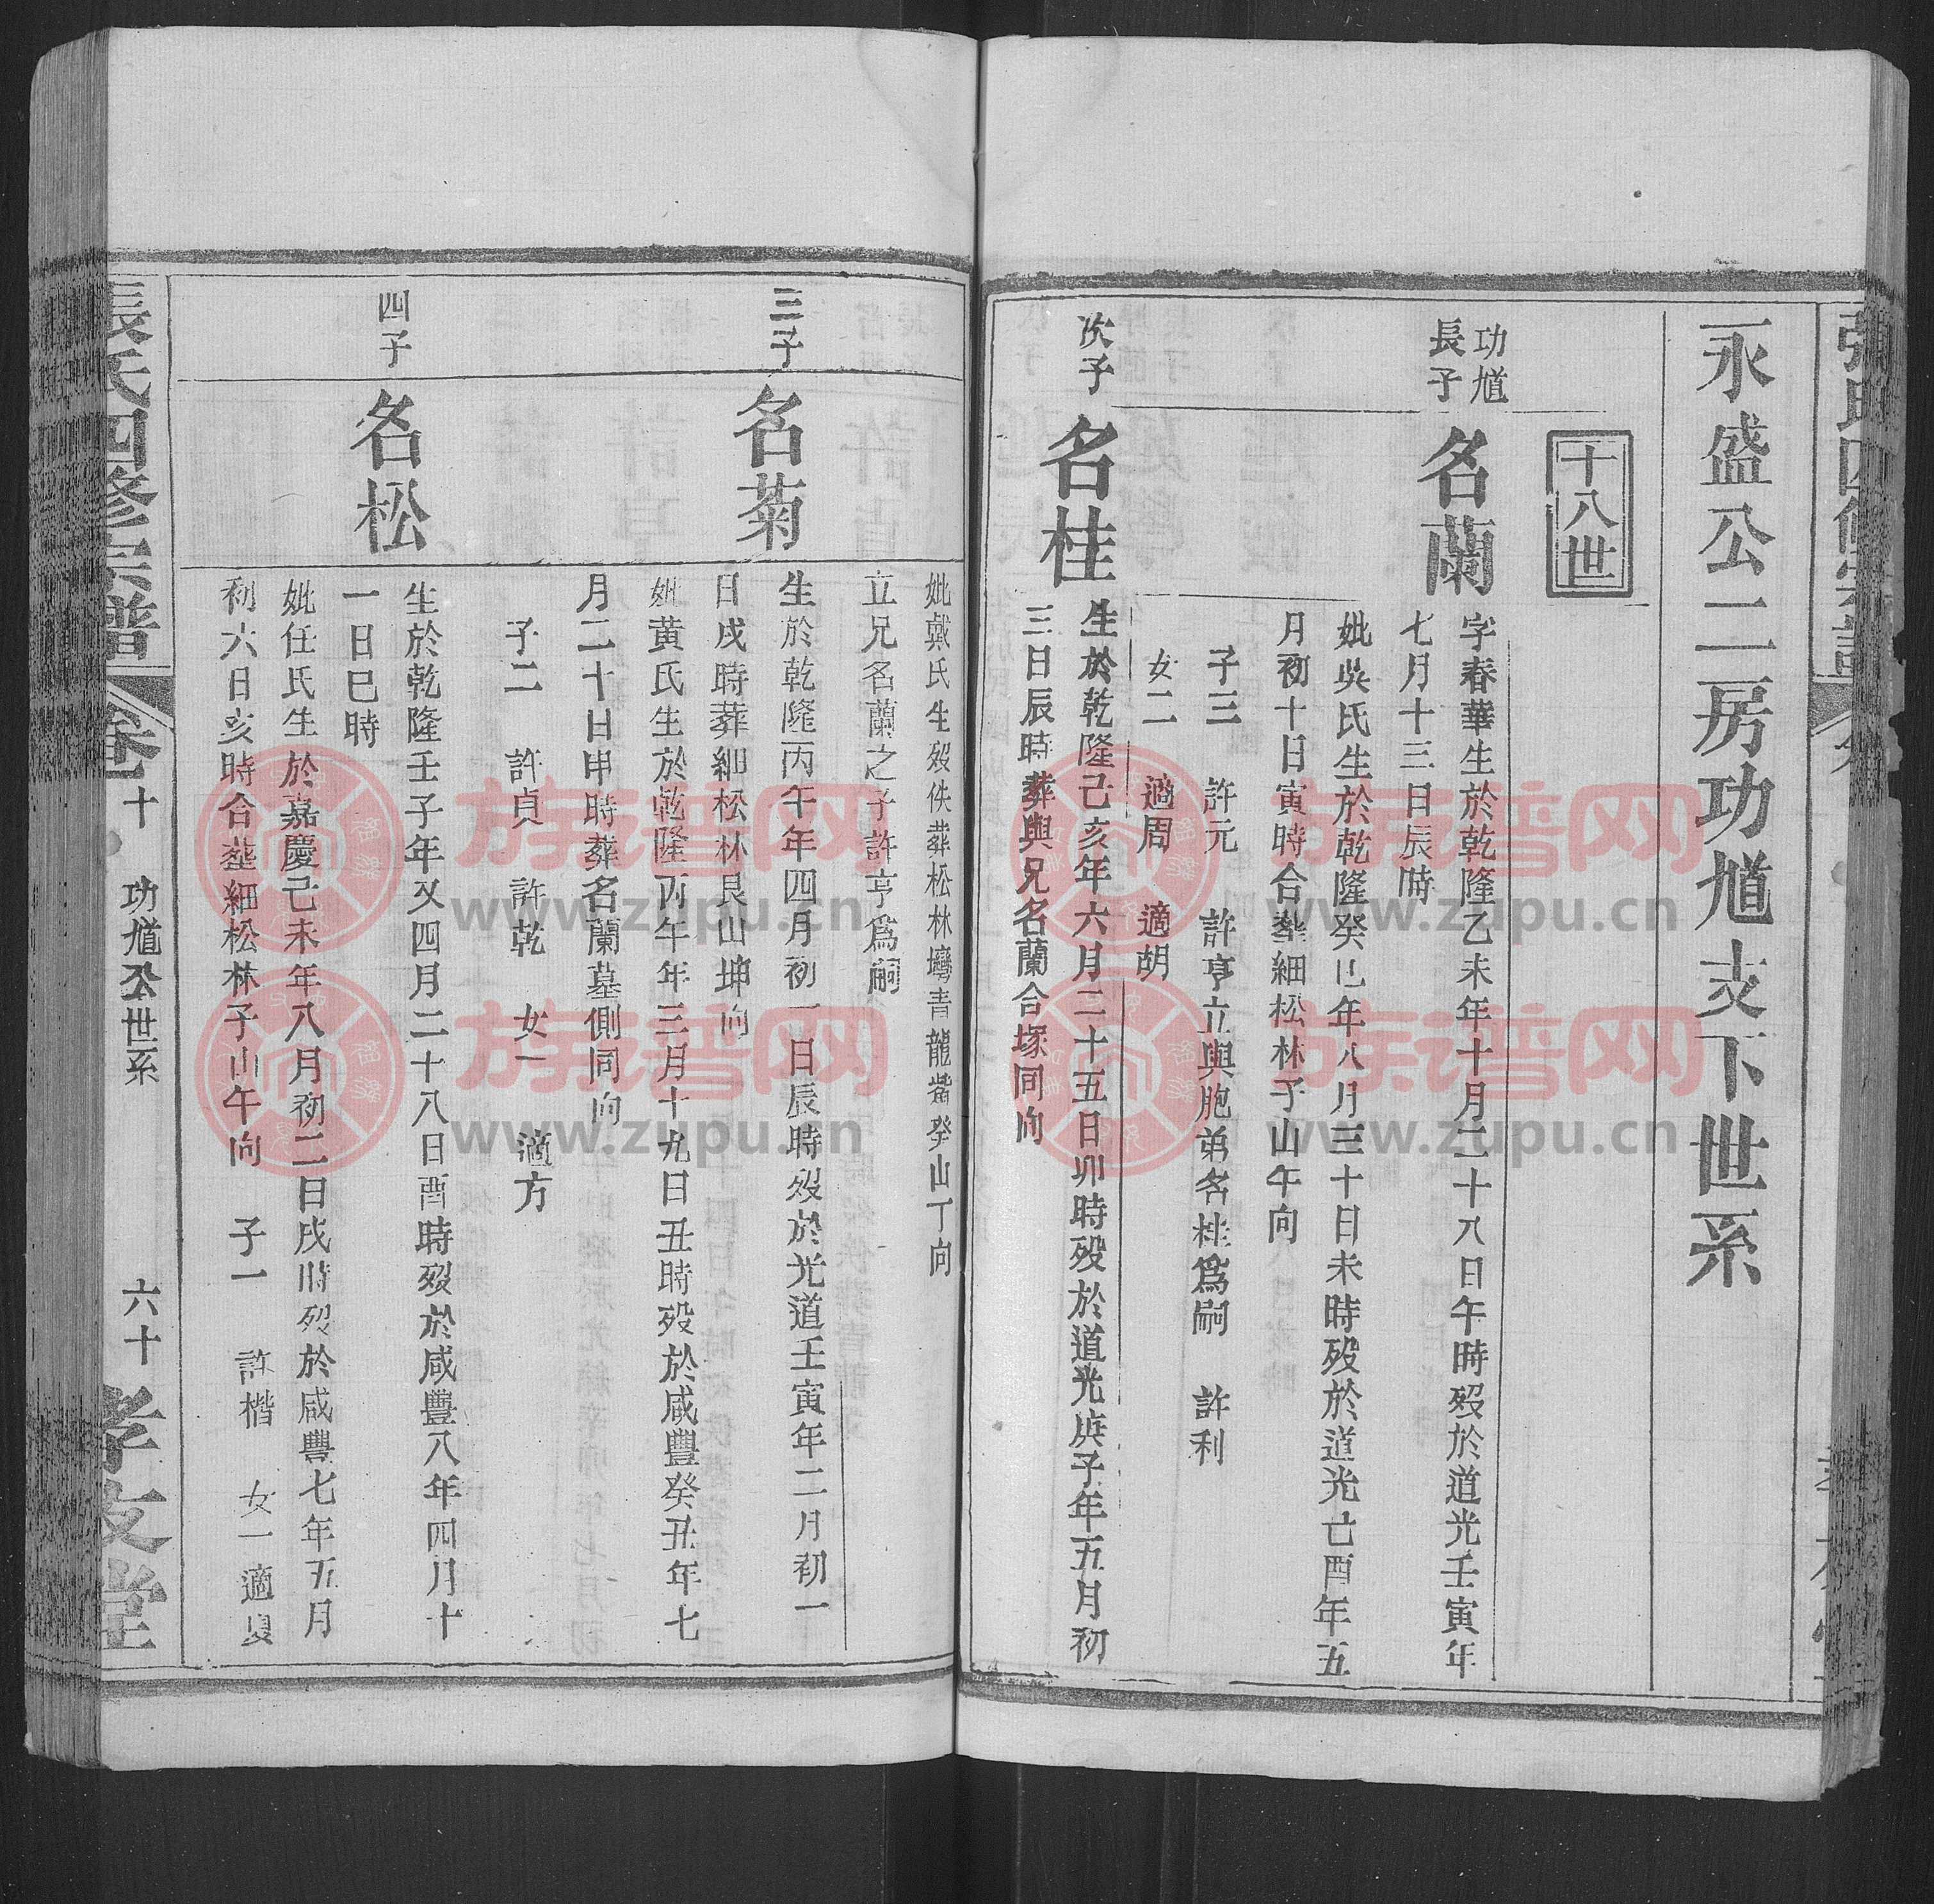 永盛公二房功馗支下世系
十八世
功馗
長子
名蘭
字春華生於乾隆乙未年十月二十八日午時歿於道光壬寅年
七月十三日辰時
妣吳氏生於乾隆癸巳年八月三十日未時歿於道光己酉年五
月初十日寅時合塟細松林子山午向
子三 許元 許亨立與胞弟名桂爲嗣 許利
女二 適周 適胡
次子
名桂
生於乾隆己亥年六月二十五日卯時歿於道光庚子年五月初
三日辰時葬與兄名蘭合塚同向
妣戴氏生歿佚葬松林塆青龍嘴癸山丁向
立兄名蘭之子許亨爲嗣
三子
名菊
生於乾隆丙午年四月初一日辰時歿於光道壬寅年二月初一
日戌時葬細松林艮山坤向
妣黄氏生於乾隆丙午年三月十九日丑時歿於咸豐癸丑年七
月二十日申時葬名蘭墓側同向
子二 許貞 許乾 女一 適方
四子
名松
生於乾隆壬子年又四月二十八日酉時歿於咸豐八年四月十
一日巳時
妣任氏生於嘉慶己未年八月初二日戌時歿於咸豐七年五月
初六日亥時合塟細松林子山午向 子一 許楷 女一適夏
張氏四修宗譜 卷十 功馗公世系 六十 孝友堂
族譜网
www.zupu.cn
族譜网
www.zupu.cn
族譜网
www.zupu.cn
族譜网
www.zupu.cn